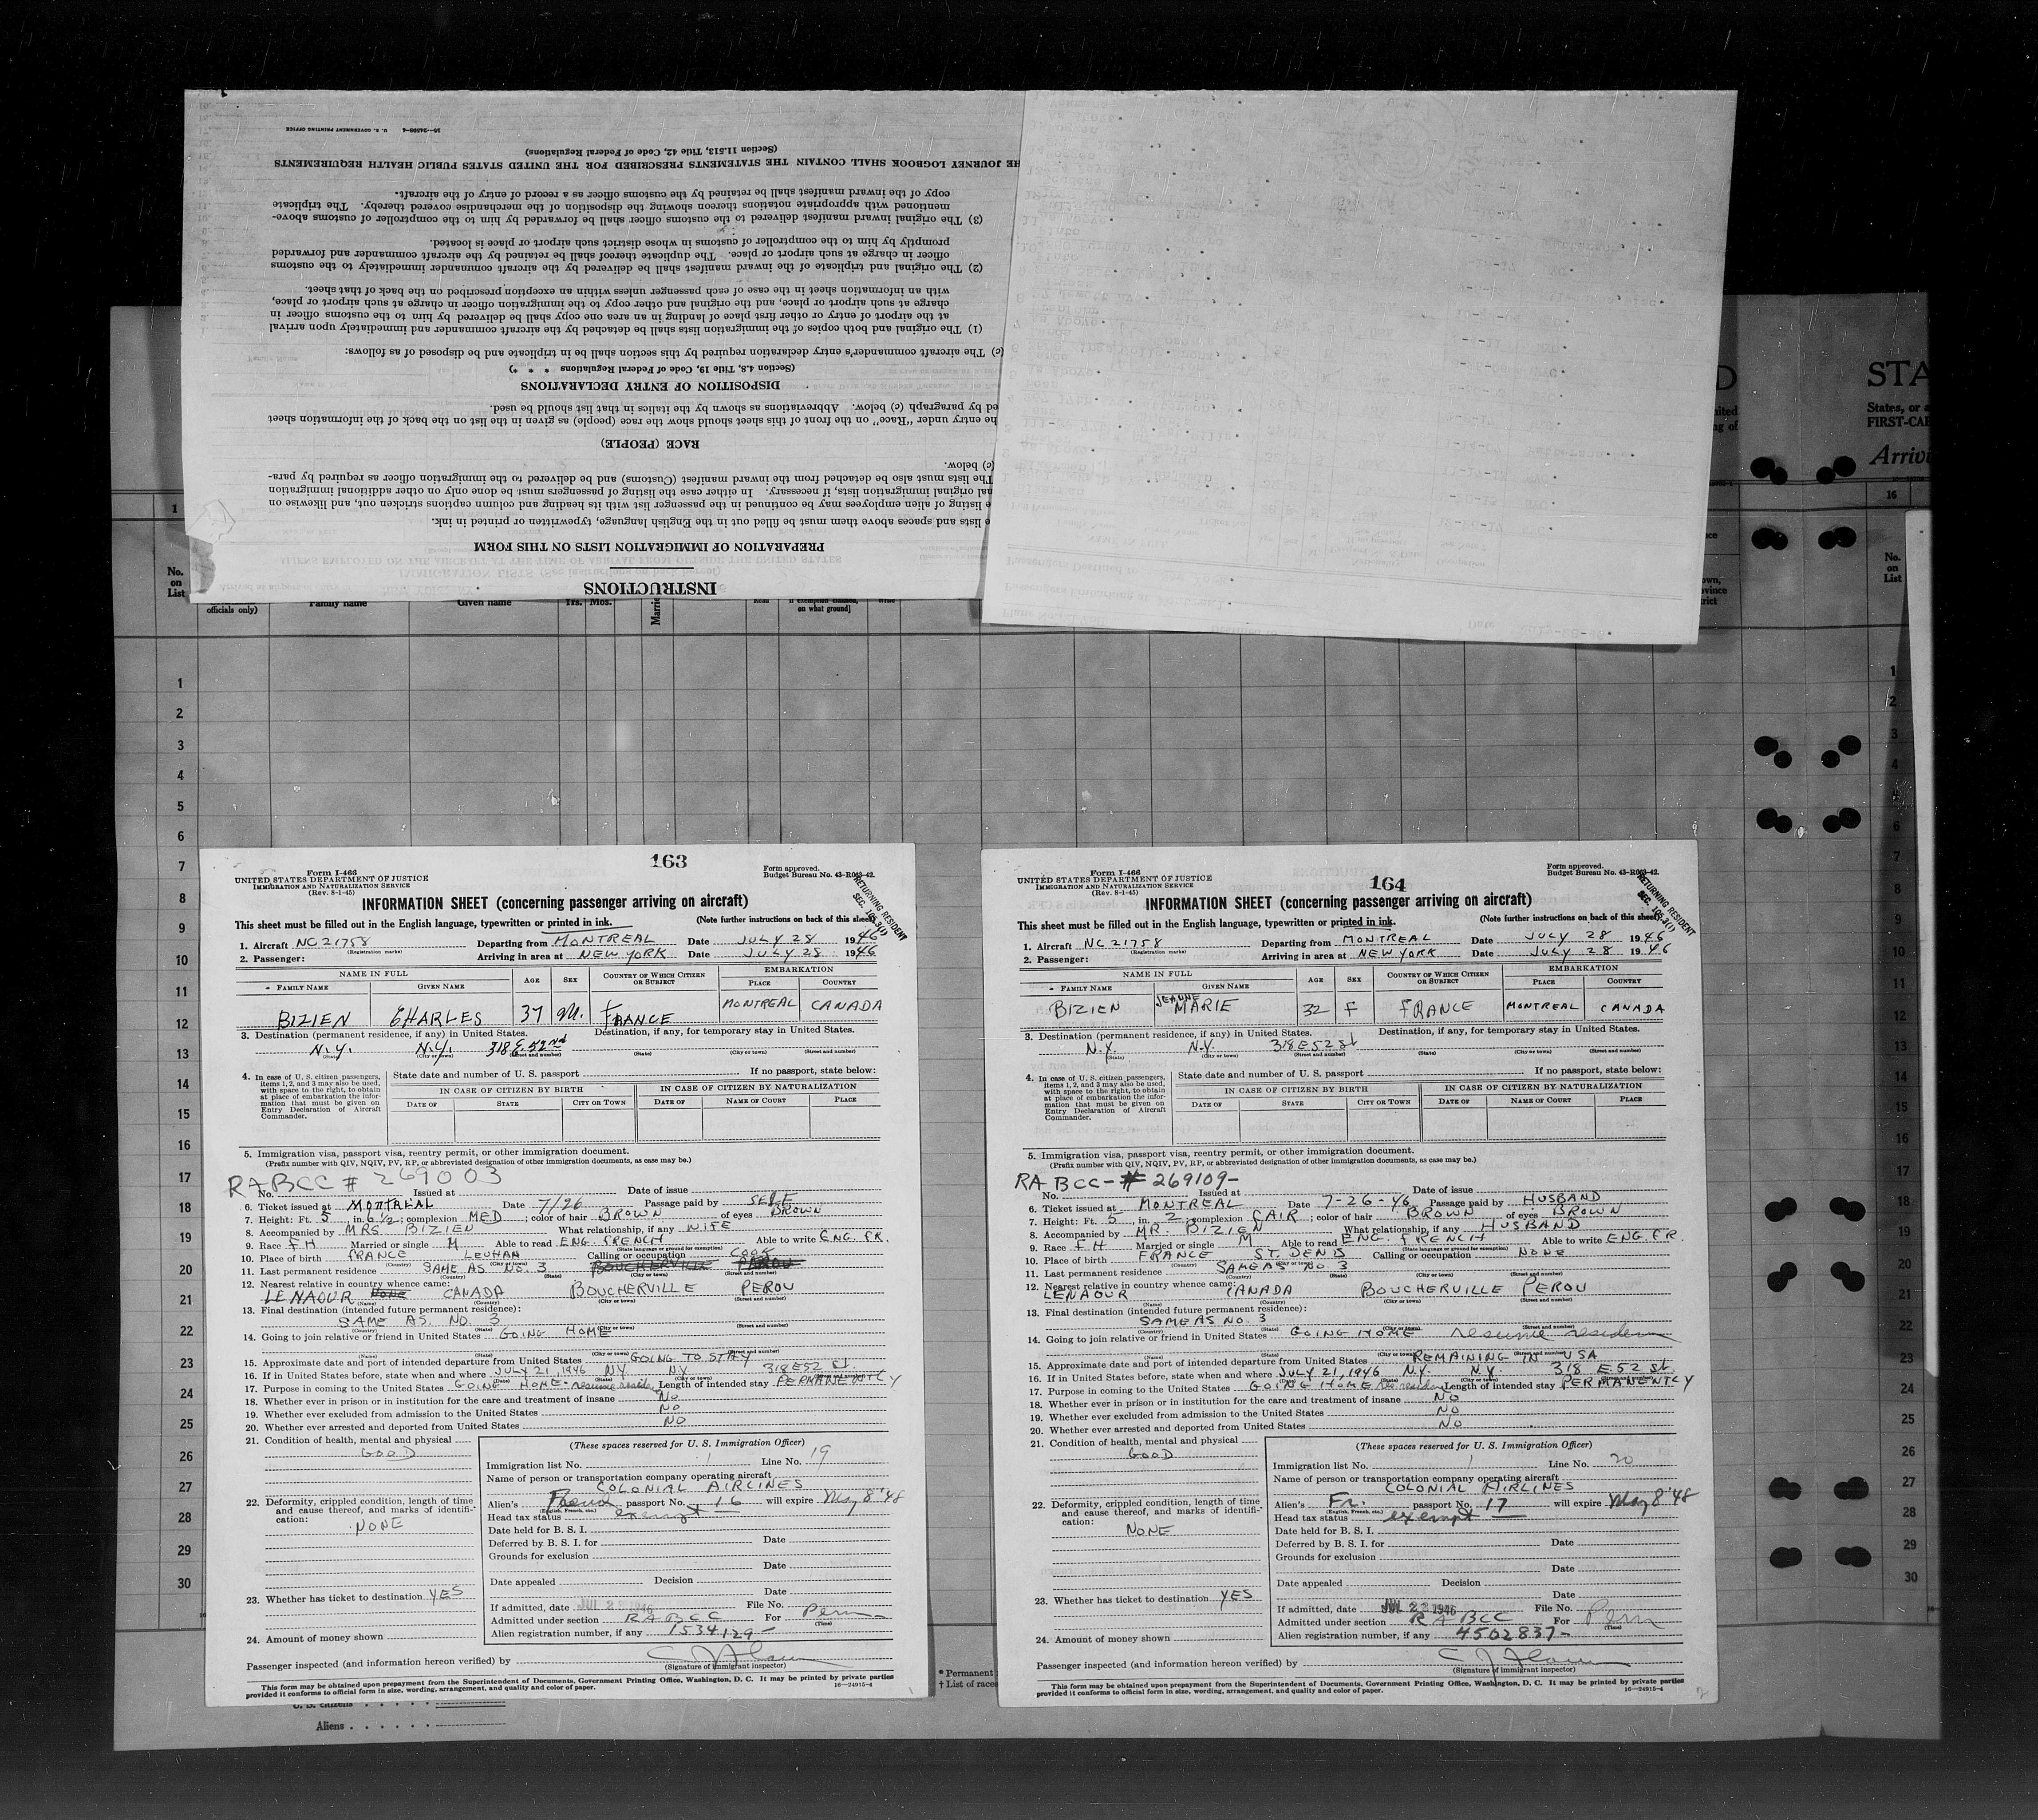 16—24598-4 U. S. GOVERNMENT PRINTING OFFICE
(Section 11.513, Title 42, Code of Federal Regulations)
HE JOURNEY LOGBOOK SHALL CONTAIN THE STATEMENTS PRESCRIBED FOR THE UNITED STATES PUBLIC HEALTH REQUIREMENTS
copy of the inward manifest shall be retained by the customs officer as a record of entry of the aircraft.
mentioned with appropriate notations thereon showing the disposition of the merchandise covered thereby. The triplicate
(3) The original inward manifest delivered to the customs officer shall be forwarded by him to the comptroller of customs above-
promptly by him to the comptroller of customs in whose district such airport or place is located.
officer in charge at such airport or place. The duplicate thereof shall be retained by the aircraft commander and forwarded
(2) The original and triplicate of the inward manifest shall be delivered by the aircraft commander immediately to the customs
with an information sheet in the case of each passenger unless within an exception prescribed on the back of that sheet.
charge at such airport or place, and the original and other copy to the immigration officer in charge at such airport or place,
at the airport of entry or other first place of landing in an area one copy shall be delivered by him to the customs officer in
(1) The original and both copies of the immigration lists shall be detached by the aircraft commander and immediately upon arrival
(c) The aircraft commander's entry declaration required by this section shall be in triplicate and be disposed of as follows:
(Section 4.8, Title 19, Code of Federal Regulations * * *)
DISPOSITION OF ENTRY DECLARATIONS
ed by paragraph (c) below. Abbreviations as shown by the italics in that list should be used.
he entry under "Race" on the front of this sheet should show the race (people) as given in the list on the back of the information sheet
RACE (PEOPLE)
(c) below.
The lists must also be detached from the inward manifest (Customs) and be delivered to the immigration officer as required by para-
nal original immigration lists, if necessary. In either case the listing of passengers must be done only on other additional immigration
e listing of alien employees may be continued in the passenger list with its heading and column captions stricken out, and likewise on
e lists and spaces above them must be filled out in the English language, typewritten or printed in ink.
PREPARATION OF IMMIGRATION LISTS ON THIS FORM
INSTRUCTIONS
D STA
States, or a
FIRST-CAB
Arrivi
1 16
No. on List
officials only) Family name Given name Yrs. Mos. Married Read on what ground] Write
No. on List
1
2
3
4
5
6
7
8
9
10
11
12
13
14
15
16
17
18
19
20
21
22
23
24
25
26
27
28
29
30
163
Form I-466
UNITED STATES DEPARTMENT OF JUSTICE
IMMIGRATION AND NATURALIZATION SERVICE
(Rev. 8-1-45)
Form approved.
Budget Bureau No. 43-R063-42.
RETURNING RESIDENT
SEC. 165.3(1)
INFORMATION SHEET (concerning passenger arriving on aircraft)
This sheet must be filled out in the English language, typewritten or printed in ink. (Note further instructions on back of this sheet)
1. Aircraft NC 21758 (Registration marks) Departing from MONTREAL Date JULY 28 1946
2. Passenger: Arriving in area at NEW YORK Date JULY 28 1946
NAME IN FULL AGE SEX COUNTRY OF WHICH CITIZEN OR SUBJECT EMBARKATION
FAMILY NAME GIVEN NAME PLACE COUNTRY
BIZIEN CHARLES 37 M. FRANCE MONTREAL CANADA
3. Destination (permanent residence, if any) in United States. Destination, if any, for temporary stay in United States.
N.Y. N.Y. 318 E. 52nd
(State) (City or town) (Street and number) (State) (City or town) (Street and number)
4. In case of U. S. citizen passengers, items 1, 2, and 3 may also be used, with space to the right, to obtain at place of embarkation the information that must be given on Entry Declaration of Aircraft Commander.
State date and number of U. S. passport If no passport, state below:
IN CASE OF CITIZEN BY BIRTH IN CASE OF CITIZEN BY NATURALIZATION
DATE OF STATE CITY OR TOWN DATE OF NAME OF COURT PLACE
5. Immigration visa, passport visa, reentry permit, or other immigration document.
(Prefix number with QIV, NQIV, PV, RP, or abbreviated designation of other immigration documents, as case may be.)
RABCC # 269003
No. Issued at Date of issue
6. Ticket issued at MONTREAL Date 7/26 Passage paid by SELF
7. Height: Ft. 5, in. 6 1/2; complexion MED; color of hair BROWN of eyes BROWN
8. Accompanied by MRS BIZIEN What relationship, if any WIFE
9. Race FH Married or single M Able to read ENG. FRENCH Able to write ENG. FR.
(State language or ground for exemption)
10. Place of birth FRANCE LEUHAN Calling or occupation COOK
(Country) (City or town)
11. Last permanent residence SAME AS NO. 3 BOUCHERVILLE PEROU
(Country) (State) (City or town) (Street and number)
12. Nearest relative in country whence came:
LENAOUR None CANADA BOUCHERVILLE PEROU
(Name) (Country) (City or town) (Street and number)
13. Final destination (intended future permanent residence):
SAME AS. NO. 3
(Country) (State) (City or town) (Street and number)
14. Going to join relative or friend in United States GOING HOME
(Name) (State) (City or town) (Street and number)
15. Approximate date and port of intended departure from United States GOING TO STAY
16. If in United States before, state when and where JULY 21, 1946 NY N.Y. 318 E 52 St.
(Date) (State) (City or town) (Street and number)
17. Purpose in coming to the United States GOING HOME - resume residence Length of intended stay PERMANENTLY
18. Whether ever in prison or in institution for the care and treatment of insane No
19. Whether ever excluded from admission to the United States NO
20. Whether ever arrested and deported from United States NO
21. Condition of health, mental and physical
GOOD
22. Deformity, crippled condition, length of time and cause thereof, and marks of identification:
NONE
23. Whether has ticket to destination YES
24. Amount of money shown
(These spaces reserved for U. S. Immigration Officer)
Immigration list No. 1 Line No. 19
Name of person or transportation company operating aircraft
COLONIAL AIRLINES
Alien's French passport No. 16 will expire May 8 '48
(English, French, etc.)
Head tax status exempt
Date held for B. S. I.
Deferred by B. S. I. for Date
Grounds for exclusion
Date
Date appealed Decision
Date
If admitted, date JUL 28 1946 File No.
Admitted under section RABCC For Perm
(Time)
Alien registration number, if any 1534129-
Passenger inspected (and information hereon verified) by
(Signature of immigrant inspector)
This form may be obtained upon prepayment from the Superintendent of Documents, Government Printing Office, Washington, D. C. It may be printed by private parties
provided it conforms to official form in size, wording, arrangement, and quality and color of paper. 16—24915-4
164
Form I-466
UNITED STATES DEPARTMENT OF JUSTICE
IMMIGRATION AND NATURALIZATION SERVICE
(Rev. 8-1-45)
Form approved.
Budget Bureau No. 43-R063-42.
RETURNING RESIDENT
SEC. 165.3(1)
INFORMATION SHEET (concerning passenger arriving on aircraft)
This sheet must be filled out in the English language, typewritten or printed in ink. (Note further instructions on back of this sheet)
1. Aircraft NC 21758 (Registration marks) Departing from MONTREAL Date JULY 28 1946
2. Passenger: Arriving in area at NEW YORK Date JULY 28 1946
NAME IN FULL AGE SEX COUNTRY OF WHICH CITIZEN OR SUBJECT EMBARKATION
FAMILY NAME GIVEN NAME PLACE COUNTRY
BIZIEN JEANNE MARIE 32 F FRANCE MONTREAL CANADA
3. Destination (permanent residence, if any) in United States. Destination, if any, for temporary stay in United States.
N.Y. N.Y. 318 E 52 St
(State) (City or town) (Street and number) (State) (City or town) (Street and number)
4. In case of U. S. citizen passengers, items 1, 2, and 3 may also be used, with space to the right, to obtain at place of embarkation the information that must be given on Entry Declaration of Aircraft Commander.
State date and number of U. S. passport If no passport, state below:
IN CASE OF CITIZEN BY BIRTH IN CASE OF CITIZEN BY NATURALIZATION
DATE OF STATE CITY OR TOWN DATE OF NAME OF COURT PLACE
5. Immigration visa, passport visa, reentry permit, or other immigration document.
(Prefix number with QIV, NQIV, PV, RP, or abbreviated designation of other immigration documents, as case may be.)
RA BCC-# 269109-
No. Issued at Date of issue
6. Ticket issued at MONTREAL Date 7-26-46 Passage paid by HUSBAND
7. Height: Ft. 5, in. 2; complexion FAIR; color of hair BROWN of eyes BROWN
8. Accompanied by MR. BIZIEN What relationship, if any HUSBAND
9. Race FH Married or single M Able to read ENG. FRENCH Able to write ENG. FR.
10. Place of birth FRANCE ST. DENIS Calling or occupation NONE
(Country) (City or town)
11. Last permanent residence SAME AS NO 3
(Country) (State) (City or town) (Street and number)
12. Nearest relative in country whence came:
LENAOUR CANADA BOUCHERVILLE PEROU
(Name) (Country) (City or town) (Street and number)
13. Final destination (intended future permanent residence):
SAME AS NO. 3
(Country) (State) (City or town) (Street and number)
14. Going to join relative or friend in United States GOING HOME resume residence
(Name) (State) (City or town) (Street and number)
15. Approximate date and port of intended departure from United States REMAINING IN USA
16. If in United States before, state when and where JULY 21, 1946 N.Y. N.Y. 318 E. 52 St.
(Date) (State) (City or town) (Street and number)
17. Purpose in coming to the United States GOING HOME Length of intended stay PERMANENTLY
18. Whether ever in prison or in institution for the care and treatment of insane NO
19. Whether ever excluded from admission to the United States NO
20. Whether ever arrested and deported from United States NO
21. Condition of health, mental and physical
GOOD
22. Deformity, crippled condition, length of time and cause thereof, and marks of identification:
NONE
23. Whether has ticket to destination YES
24. Amount of money shown
(These spaces reserved for U. S. Immigration Officer)
Immigration list No. 1 Line No. 20
Name of person or transportation company operating aircraft
COLONIAL AIRLINES
Alien's Fr. passport No. 17 will expire May 8 '48
(English, French, etc.)
Head tax status exempt
Date held for B. S. I.
Deferred by B. S. I. for Date
Grounds for exclusion
Date
Date appealed Decision
Date
If admitted, date JUL 28 1946 File No.
Admitted under section RABCC For Perm
(Time)
Alien registration number, if any 4502837-
Passenger inspected (and information hereon verified) by
(Signature of immigrant inspector)
This form may be obtained upon prepayment from the Superintendent of Documents, Government Printing Office, Washington, D. C. It may be printed by private parties
provided it conforms to official form in size, wording, arrangement, and quality and color of paper. 16—24915-4
* Permanent
† List of races
U. S. citizens
Aliens